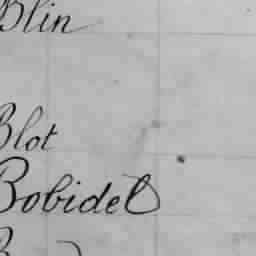 Blin
Blot
Bobidel